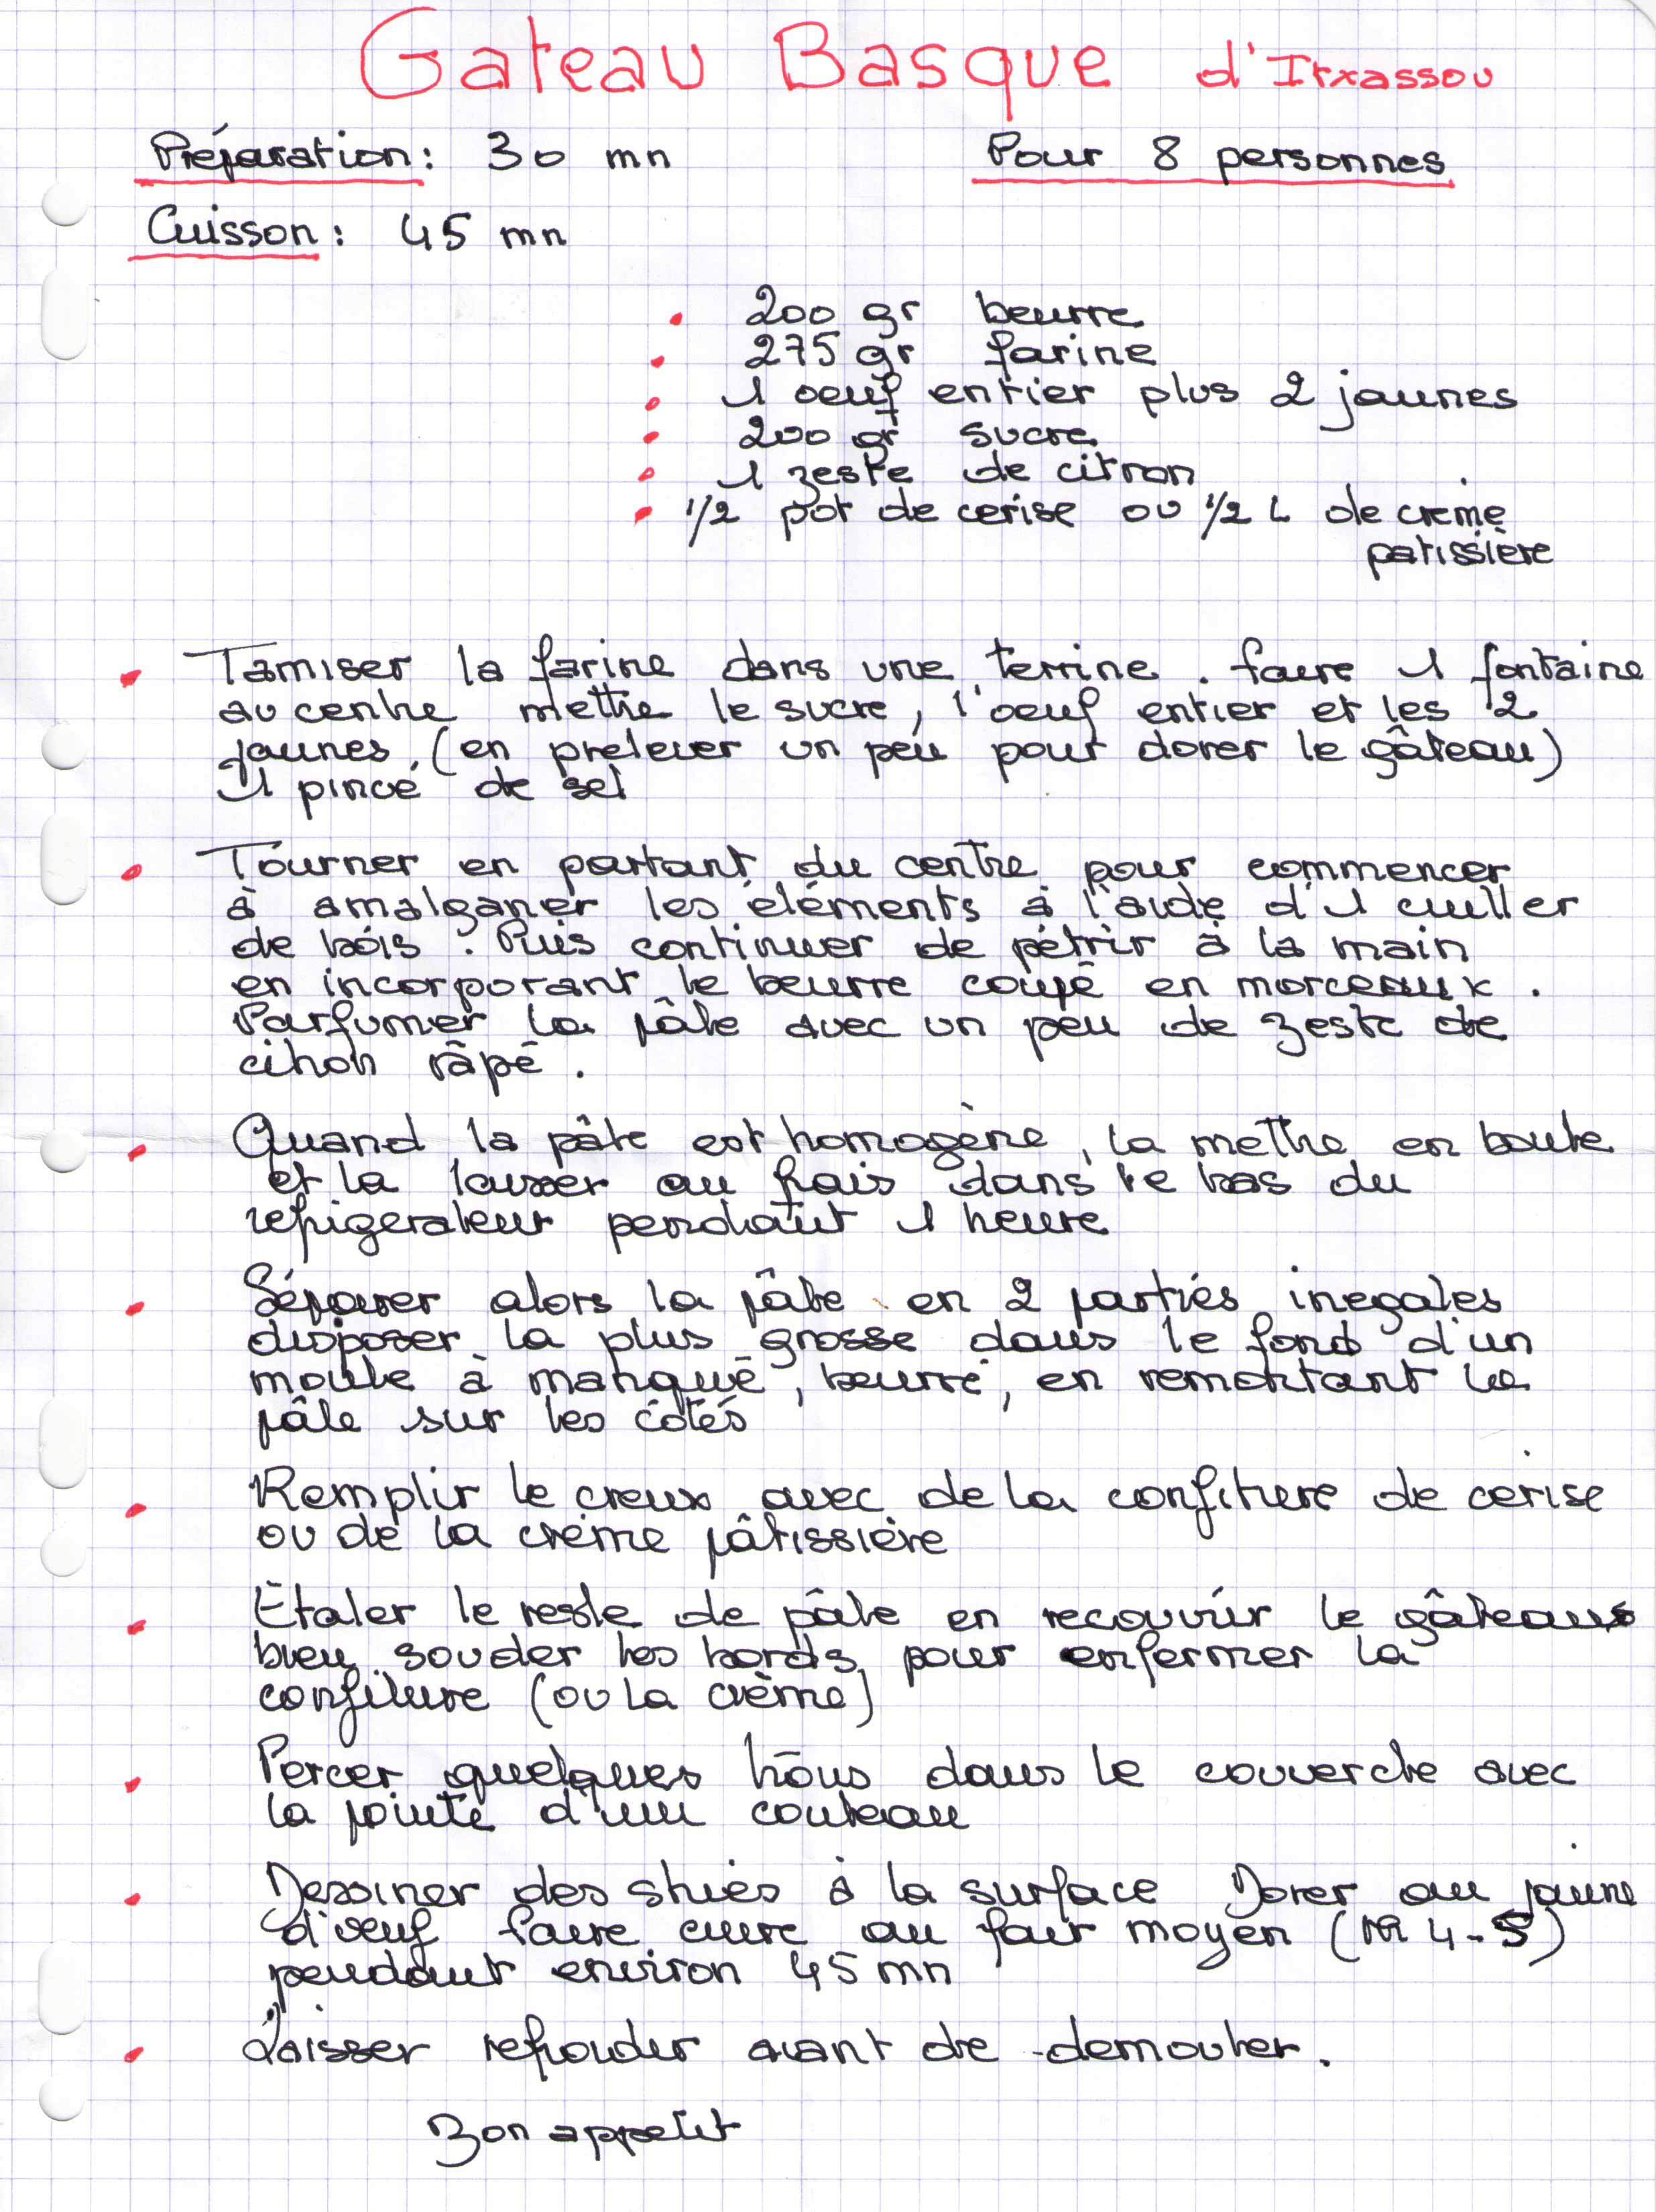 Gateau Basque d'Itxassou
Préparation: 30 mn Pour 8 personnes
Cuisson: 45 mn
200 gr beurre
275 gr farine
1 oeuf entier plus 2 jaunes
200 gr sucre
1 zeste de citron
1/2 pot de cerise ou 1/2 L de creme
patissière
Tamiser la farine dans une terrine. faire 1 fontaine
au centre mettre le sucre, l'oeuf entier et les 2
jaunes, (en prelever un peu pour dorer le gâteau)
1 pincé de sel
Tourner en partant du centre pour commencer
à amalganer les éléments à l'aide d'1 cuiller
de bois. Puis continuer de pétrir à la main
en incorporant le beurre coupé en morceaux.
Parfumer la pâte avec un peu de zeste de
citron râpé.
Quand la pâte est homogène, la mettre en boule
et la laisser au frais dans le bas du
refrigerateur pendant 1 heure
Séparer alors la pâte en 2 parties inegales
disposer la plus grosse dans le fond d'un
moule à manqué, beurré, en remontant la
pâte sur les côtés
Remplir le creux avec de la confiture de cerise
ou de la crème pâtissière
Étaler le reste de pâte en recouvrir le gâteau
bien souder les bords pour enfermer la
confiture (ou la crème)
Percer quelques trous dans le couvercle avec
la pointe d'un couteau
Dessiner des stries à la surface Dorer au jaune
d'oeuf faire cuire au four moyen (4-5)
pendant environ 45 mn
Laisser refroidir avant de demouler.
Bon appetit